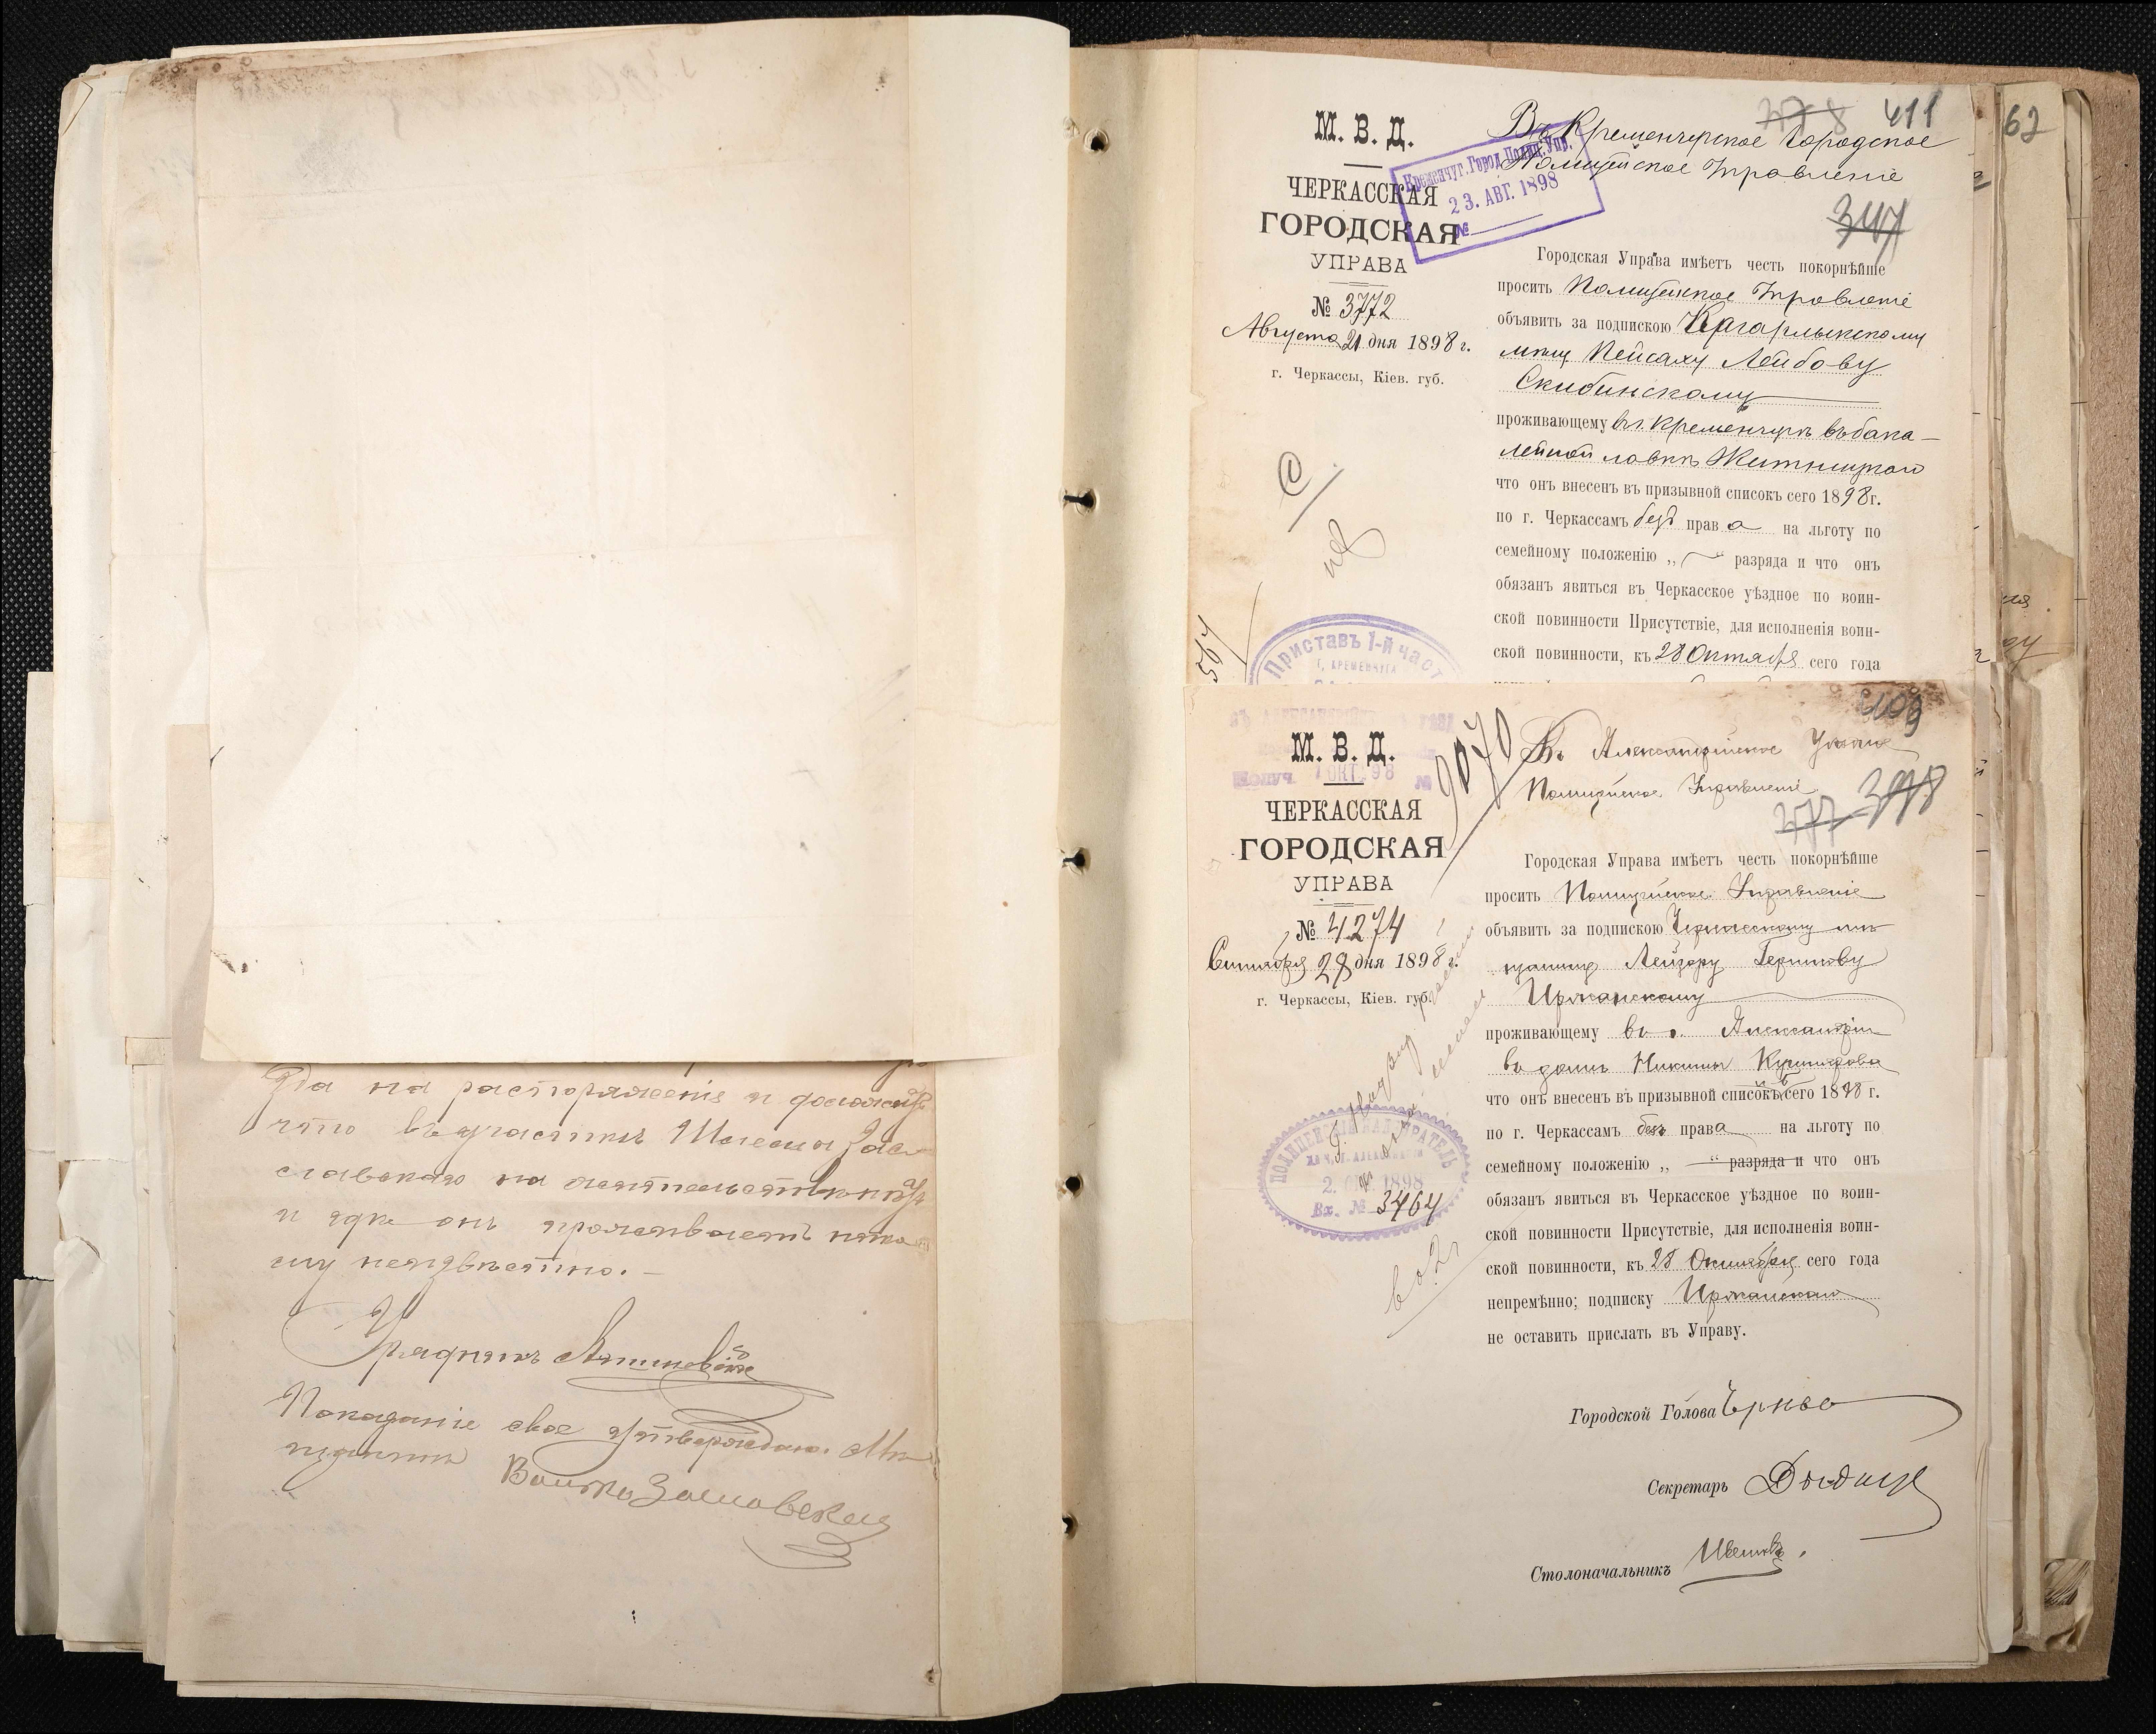 да на распоряженія и доложить
что въ участкѣ Шлема Зас-
славскаго на жительствѣ нѣтъ
и гдѣ онъ проживаетъ нико
му неизвѣстно.
Урядникъ
Показаніе свое утверждаю. Мѣ
щанинъ
М. В. Д.
ЧЕРКАССКАЯ
ГОРОДСКАЯ
УПРАВА
№ 3772
Августа 21 дня 1898 г.
г. Черкассы, Кіев. губ.
378 411
Въ Кременчугское Городское
Полицейское Управленіе
347
Кременчуг. Город. Полиц. Упр.
23. АВГ. 1898
№
Городская Управа имѣетъ честь покорнѣйше
просить Полицейское Управленіе
объявить за подпискою Кагарлыкскому
мѣщ. Пейсаху Лейбову
Скибинскому
проживающему въ г. Кременчугѣ въ бака-
лейной лавкѣ Житницкаго
что онъ внесенъ въ призывной списокъ сего 1898 г.
по г. Черкассамъ безъ права на льготу по
семейному положенію „—“ разряда и что онъ
обязанъ явиться въ Черкасское уѣздное по воин-
ской повинности Присутствіе, для исполненія воин-
ской повинности, къ 28 Октября сего года
567
Приставъ 1-й част
г. КРЕМЕНЧУГА
62
М. В. Д.
ЧЕРКАССКАЯ
ГОРОДСКАЯ
УПРАВА
№ 4274
Сентября 28 дня 1898 г.
г. Черкассы, Кіев. губ.
9070
409
Въ Александрійское Уѣздное
Полицейское Управленіе
377 398
Городская Управа имѣетъ честь покорнѣйше
просить Полицейское Управленіе
объявить за подпискою Черкасскому мѣ-
щанину Лейзеру Гершкову
Иржанскому
проживающему въ г. Александріи
въ домѣ Никиты Кушнарова
что онъ внесенъ въ призывной списокъ сего 1898 г.
по г. Черкассамъ безъ права на льготу по
семейному положенію „—“ разряда и что онъ
обязанъ явиться въ Черкасское уѣздное по воин-
ской повинности Присутствіе, для исполненія воин-
ской повинности, къ 28 Октября сего года
непремѣнно; подписку Иржанскаго
не оставить прислать въ Управу.
ПОЛИЦЕЙСКІЙ НАДЗИРАТЕЛЬ
2. ОКТ. 1898
Вх. № 3464
Городской Голова
Секретарь
Столоначальникъ